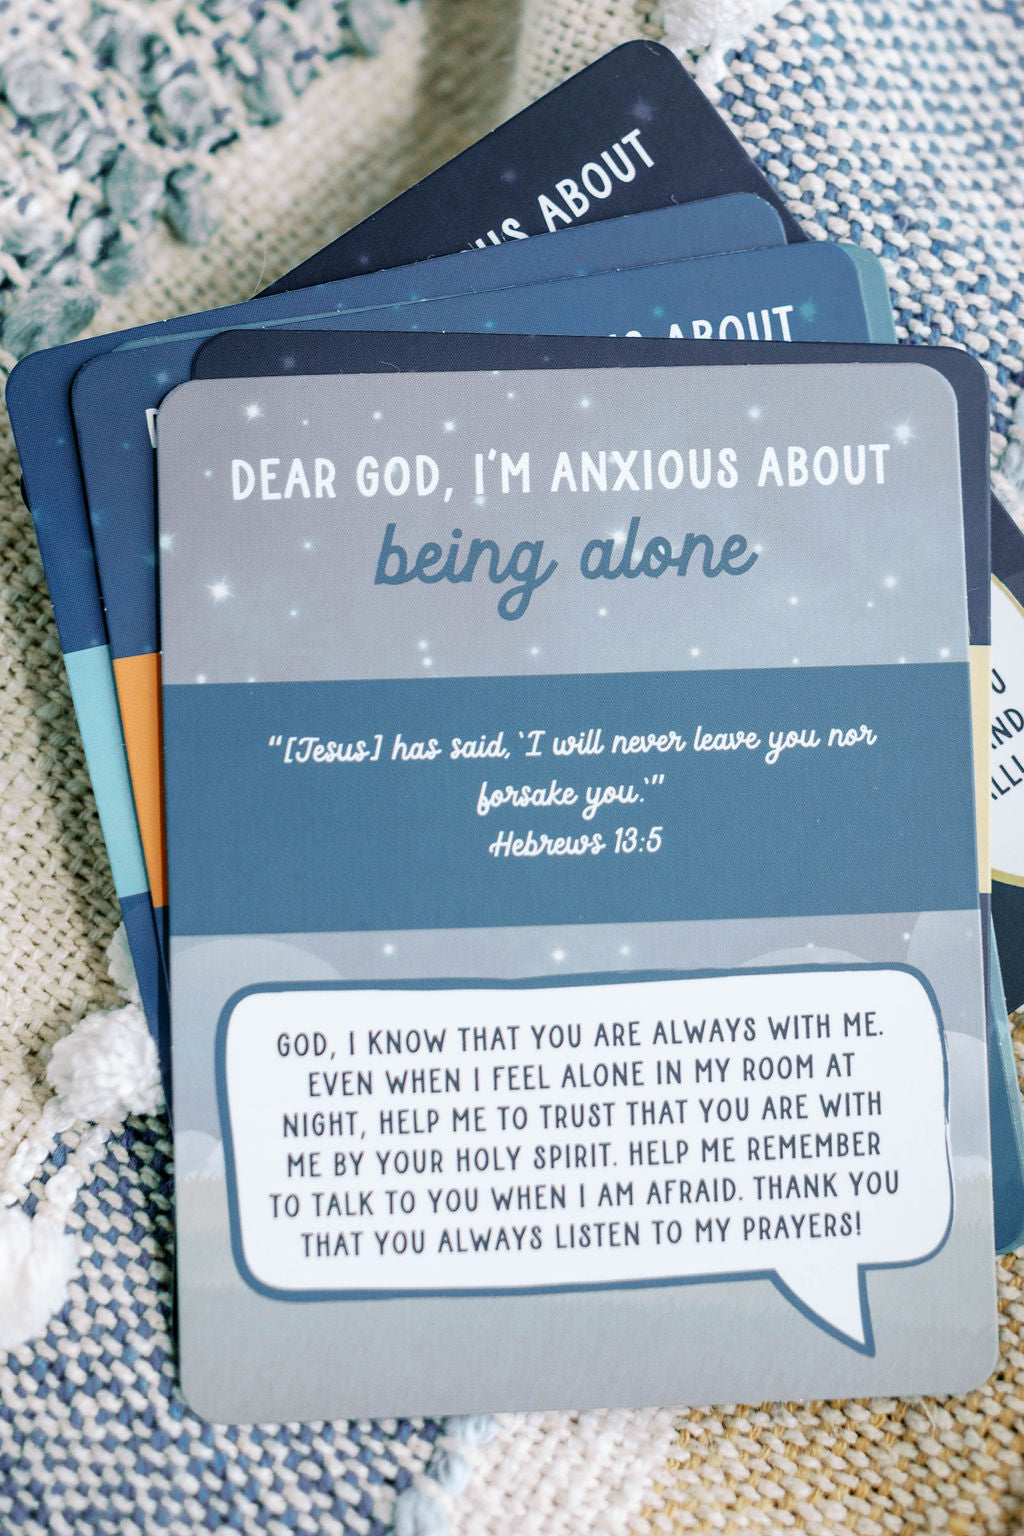 ABOUT
ABOUT
DEAR GOD, I'M ANXIOUS ABOUT
being alone
"[Jesus] has said, 'I will never leave you nor
forsake you.'"
Hebrews 13:5
GOD, I KNOW THAT YOU ARE ALWAYS WITH ME.
EVEN WHEN I FEEL ALONE IN MY ROOM AT
NIGHT, HELP ME TO TRUST THAT YOU ARE WITH
ME BY YOUR HOLY SPIRIT. HELP ME REMEMBER
TO TALK TO YOU WHEN I AM AFRAID. THANK YOU
THAT YOU ALWAYS LISTEN TO MY PRAYERS!